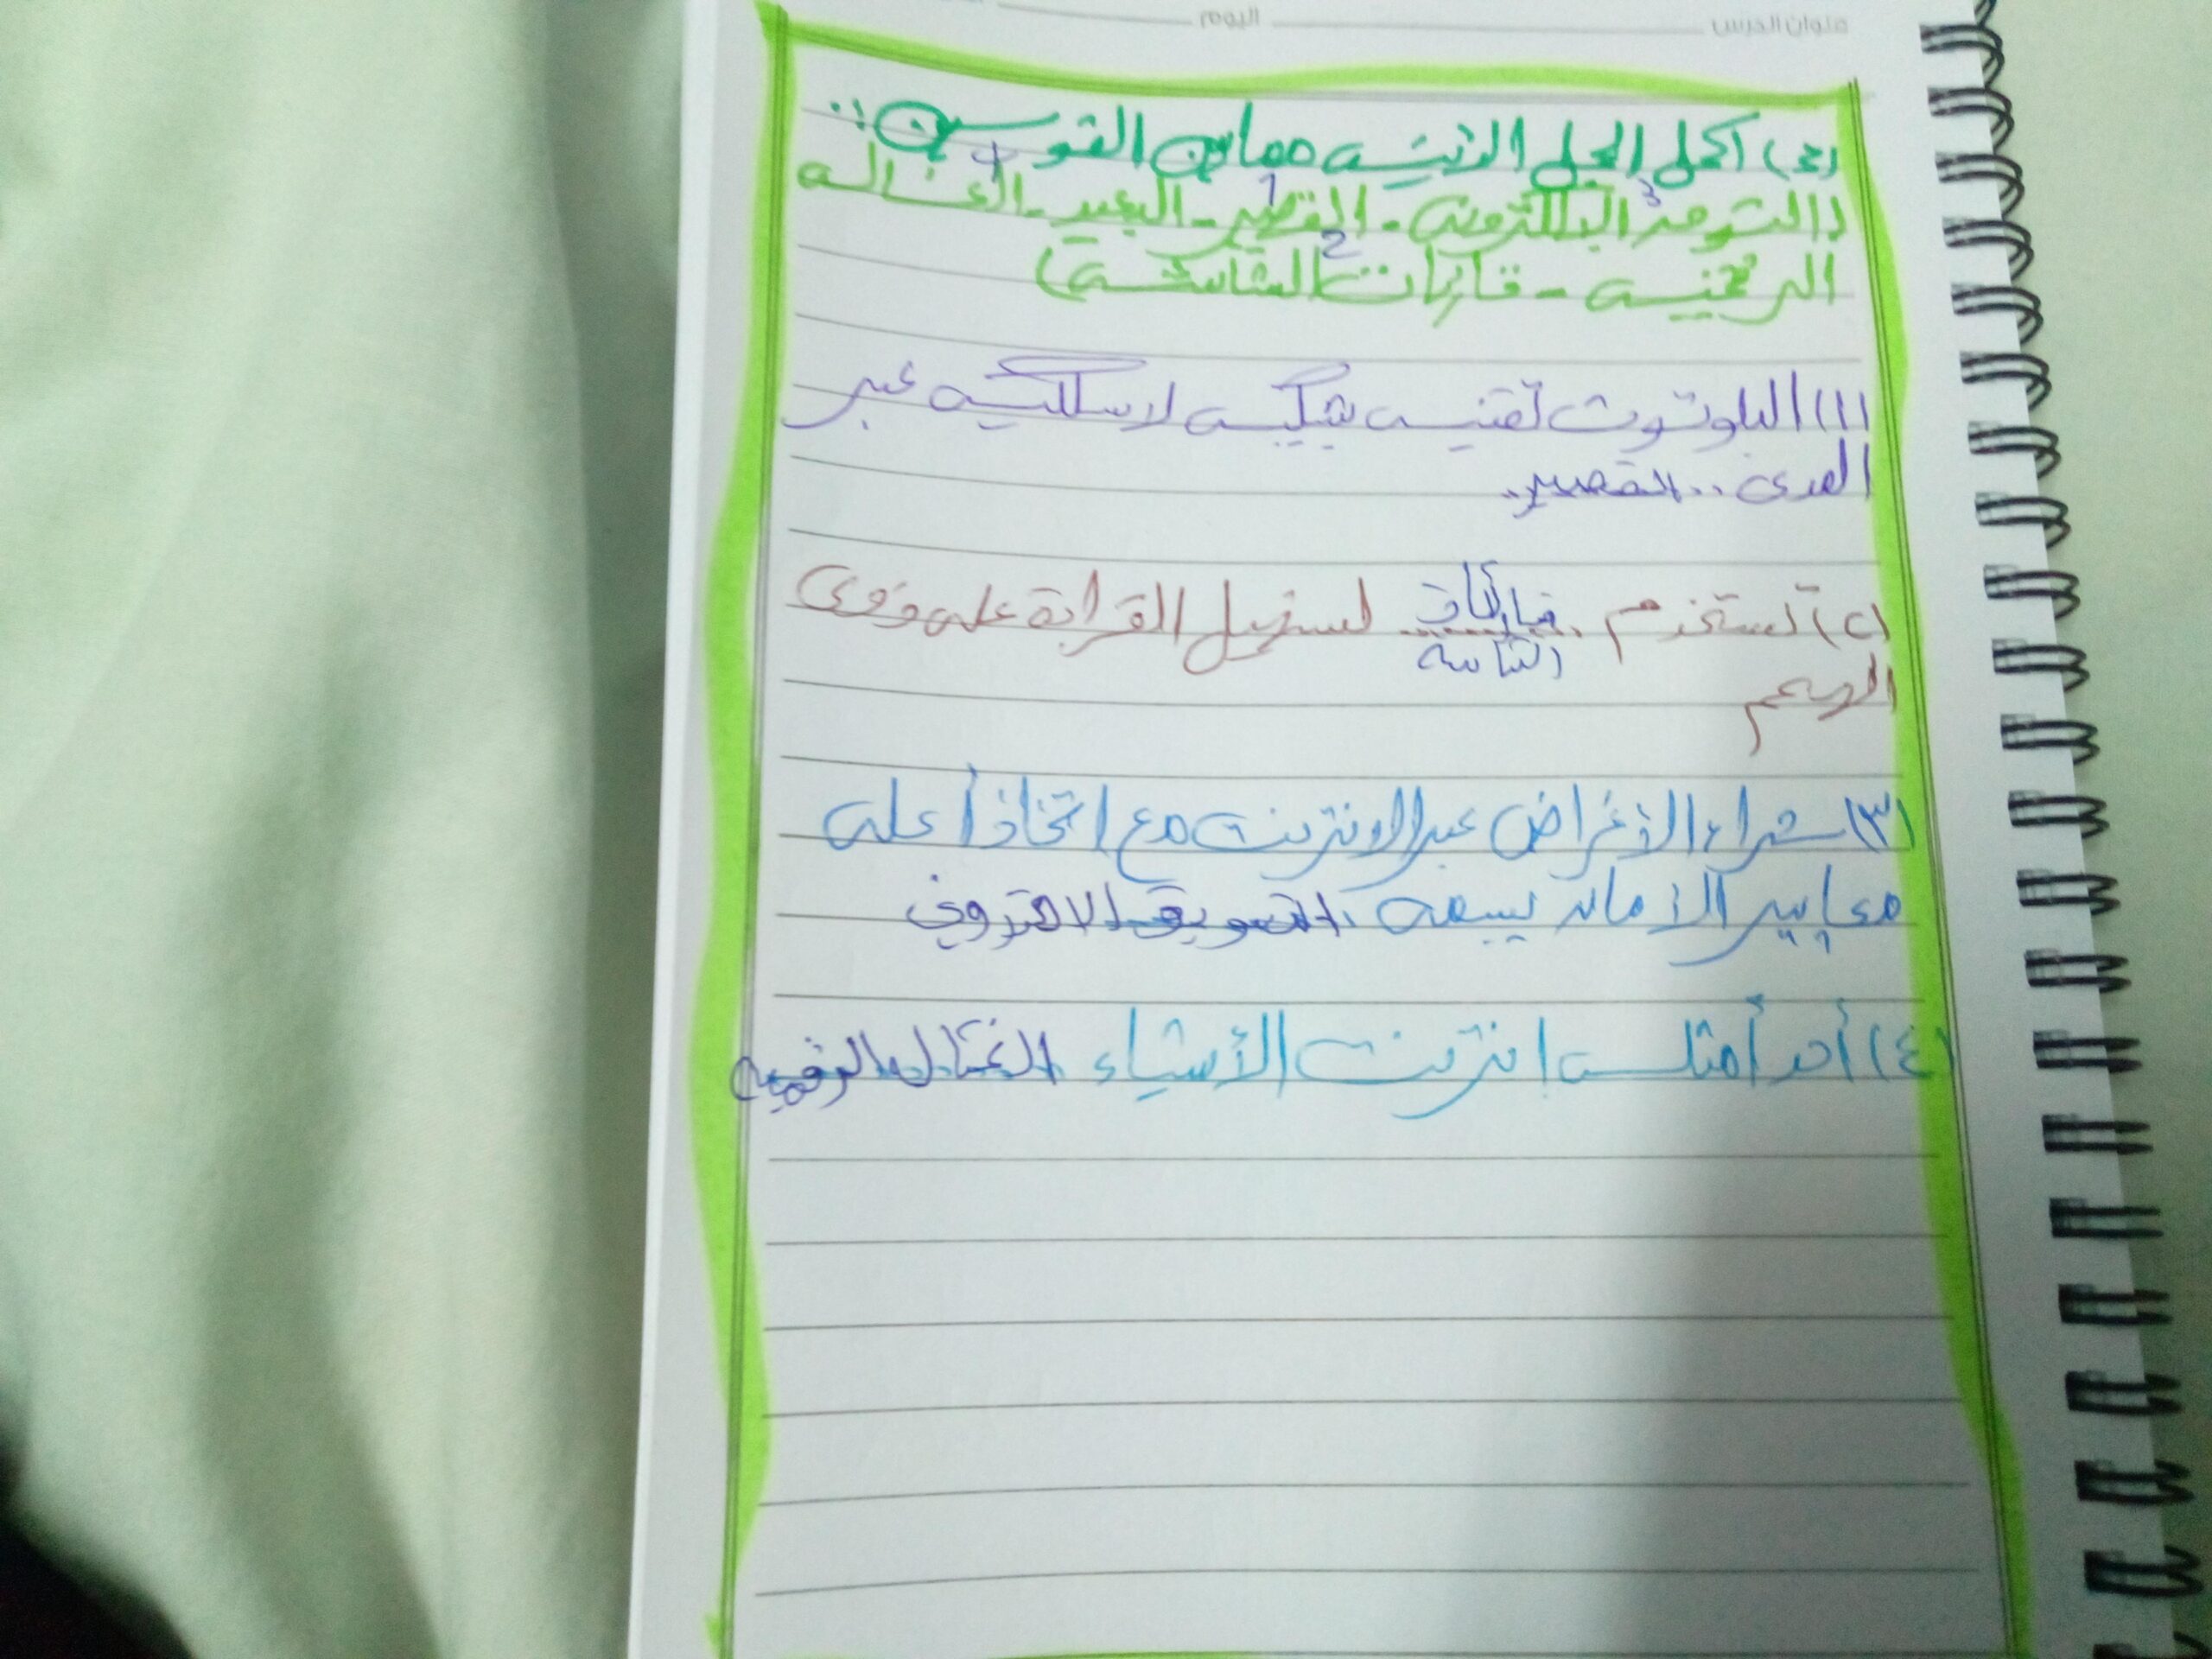 عنوان الدرس اليوم
٢) اكمل الجمل الاتيه مما بين القوسين :
(التسوق الالكتروني - القصير - البعيد - الغساله
الرقميه - قارئات الشاشه)
١) البلوتوث تقنيه شبكيه لاسلكيه عبر
المدى .. القصير ..
٢) تستخدم قارئات لتسهيل القراءة على ذوي
الشاشه
الهمم
٣) شراء الأغراض عبر الانترنت مع اتخاذ أعلى
معايير الأمان يسمى التسويق الالكتروني
٤) أحد أمثله انترنت الأشياء الغساله الرقميه
1
2
3
4